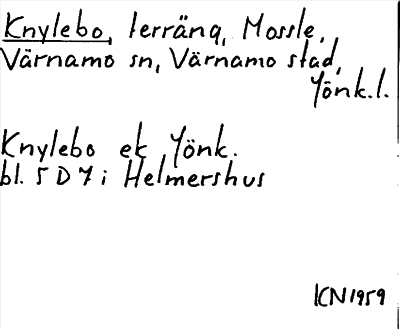 Knylebo, terräng, Mossle,
Värnamo sn, Värnamo stad,
Jönk.l.
Knylebo ek Jönk.
bl. 5 D 7 i Helmershus
KN 1959